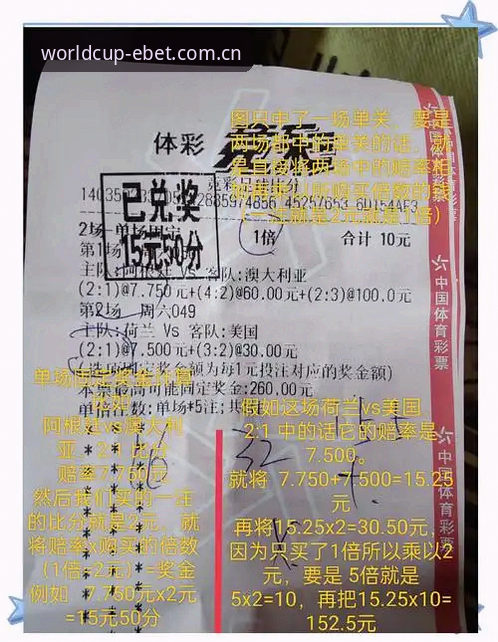 worldcup-ebet.com.cn
图只中了一场单关，要是
两场都中的单关的话，就
是直接将两场中的赔率相
（一注就是2元就是1倍）
体彩
竞彩足球比分
已兑奖
15元50分
2场-单场固定
1倍
合计 10元
第1场
主队:阿根廷 Vs 客队:澳大利亚
(2:1)@7.750元+(4:2)@60.00元+(2:3)@100.0元
第2场 周六049
主队:荷兰 Vs 客队:美国
(2:1)@7.500元+(3:2)@30.00元
(选项固定奖金额为每1元投注对应的奖金额)
本票最高可能固定奖金:260.00元
单倍注数:单场*5注;共
中国体育彩票
中国体育彩票
单场固定奖金计算
阿根廷vs澳大利
亚 2:1 比分
赔率7.750元
然后我们买的一注
的比分就是2元，就
将赔率x购买的倍数
（1倍=2元）=奖金
例如 7.750元x2元
=15元50分
假如这场荷兰vs美国
2:1 中的话它的赔率是
7.500。
就将 7.750+7.500=15.25
元
再将15.25x2=30.50元，
因为只买了1倍所以乘以2
元，要是 5倍就是
5x2=10，再把15.25x10=
152.5元